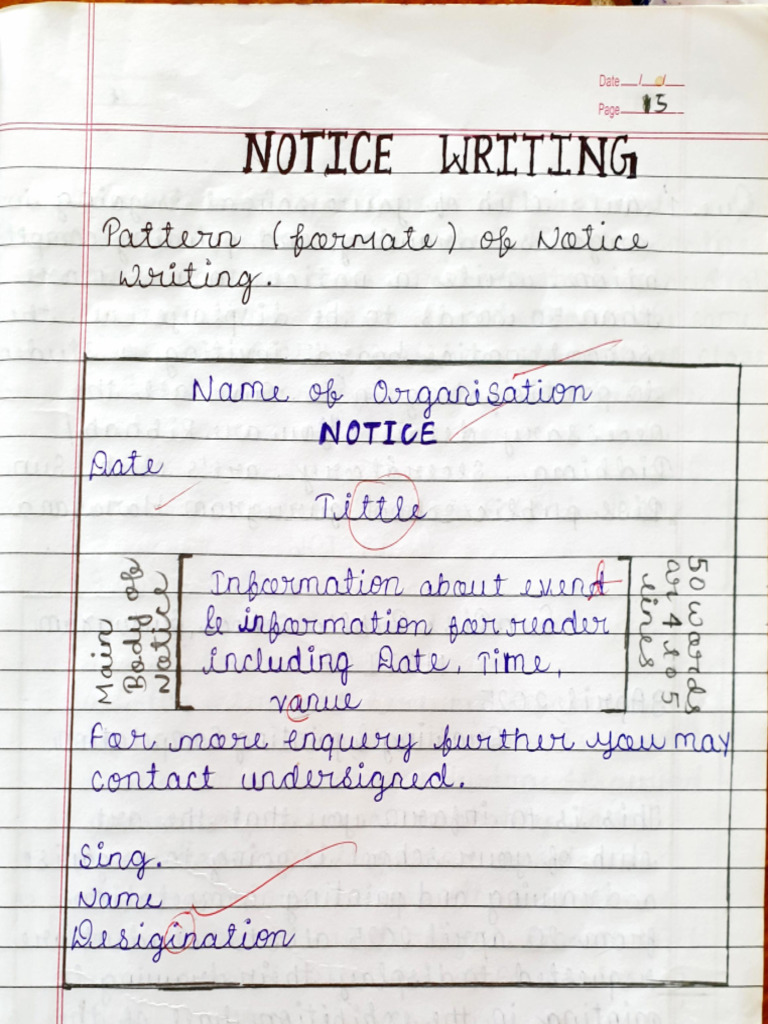 Date__/__/__
Page 15
NOTICE WRITING
Pattern (formate) of Notice
writing.
Name of Organisation
NOTICE
Date
Tittle
Main
Body of
Notice
Information about event
& information for reader
including Date, Time,
vanue
50 words
or 4 to 5
lines
For more enquery further you may
contact undersigned.
Sing.
Name
Desigination